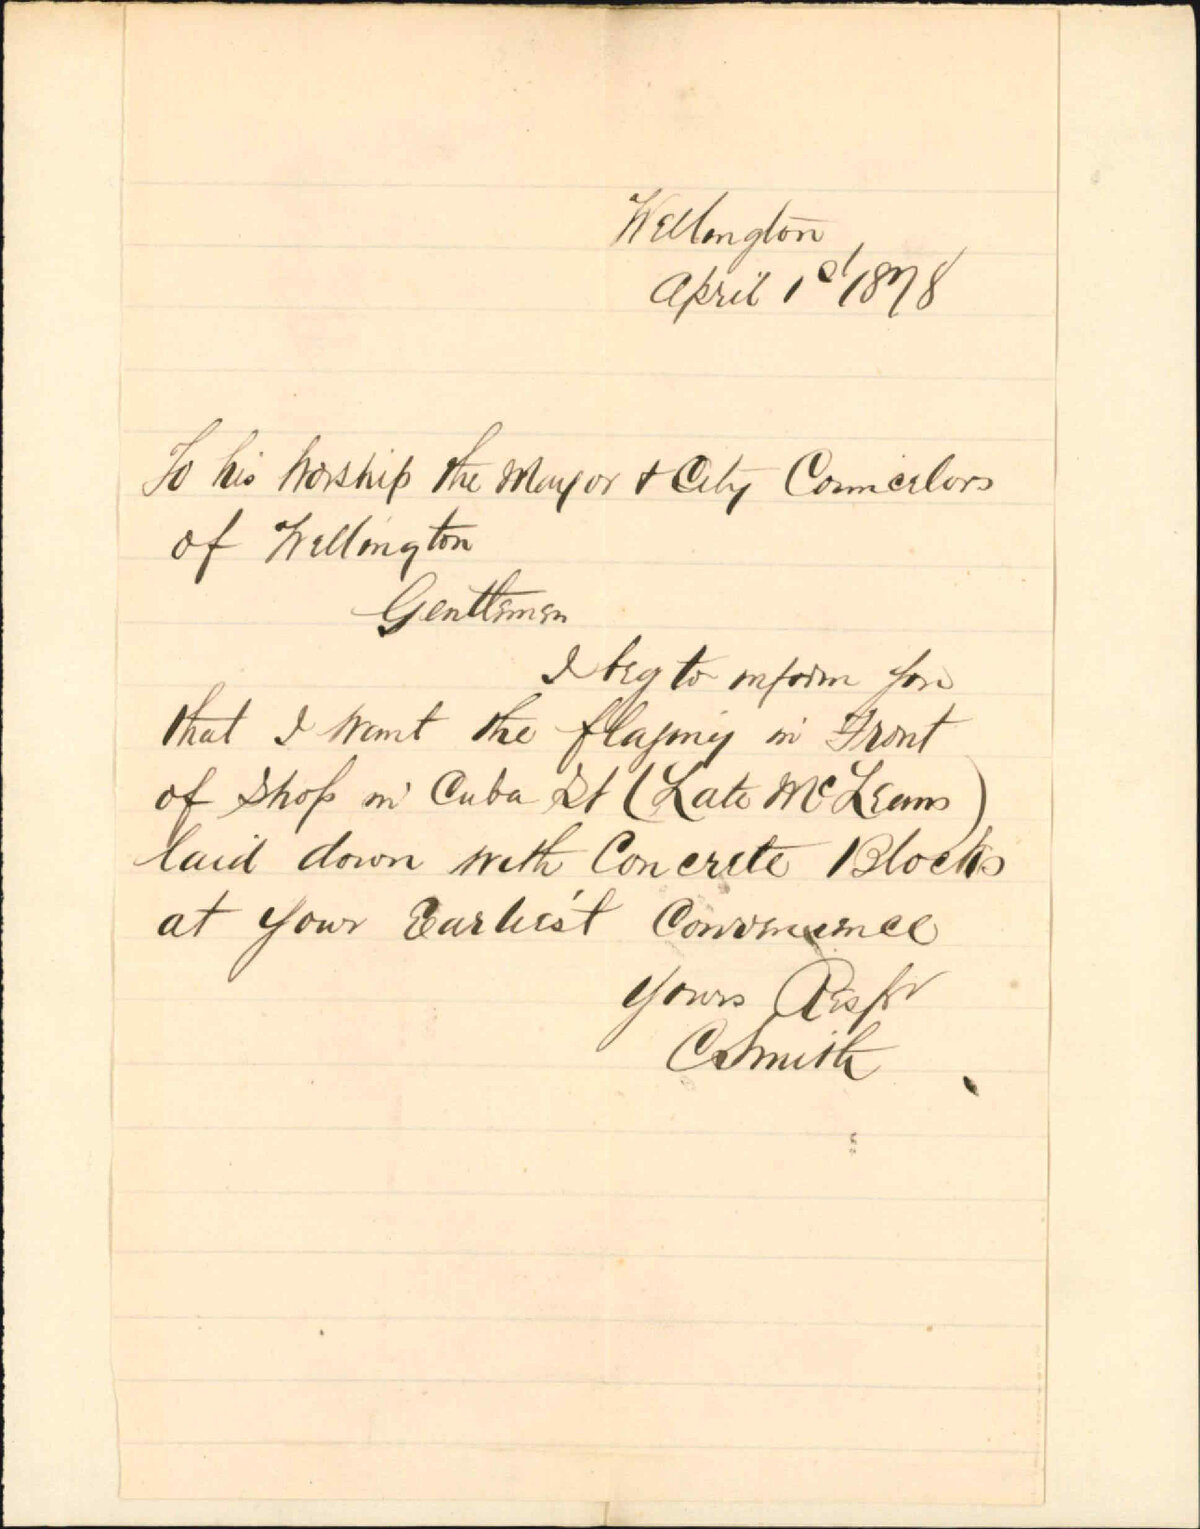 Wellington
April 1st 1878
To his Worship the Mayor & City Councelors
of Wellington
Gentlemen
I beg to inform you
that I want the flaging in Front
of Shop in Cuba St (Late McLeans)
laid down with Concrete Blocks
at your Earliest Convenience
Yours Respy
C Smith